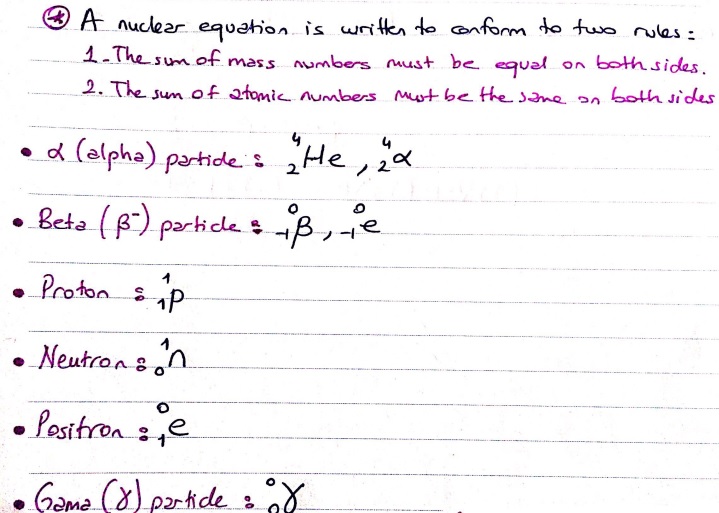 ⊛ A nuclear equation is written to conform to two rules:
1-The sum of mass numbers must be equal on both sides.
2. The sum of atomic numbers must be the same on both sides
• α (alpha) particle : ⁴₂He , ⁴₂α
• Beta (β⁻) particle : ⁰₋₁β , ⁰₋₁e
• Proton : ¹₁p
• Neutron : ¹₀n
• Positron : ⁰₁e
• Gama (γ) particle : ⁰₀γ